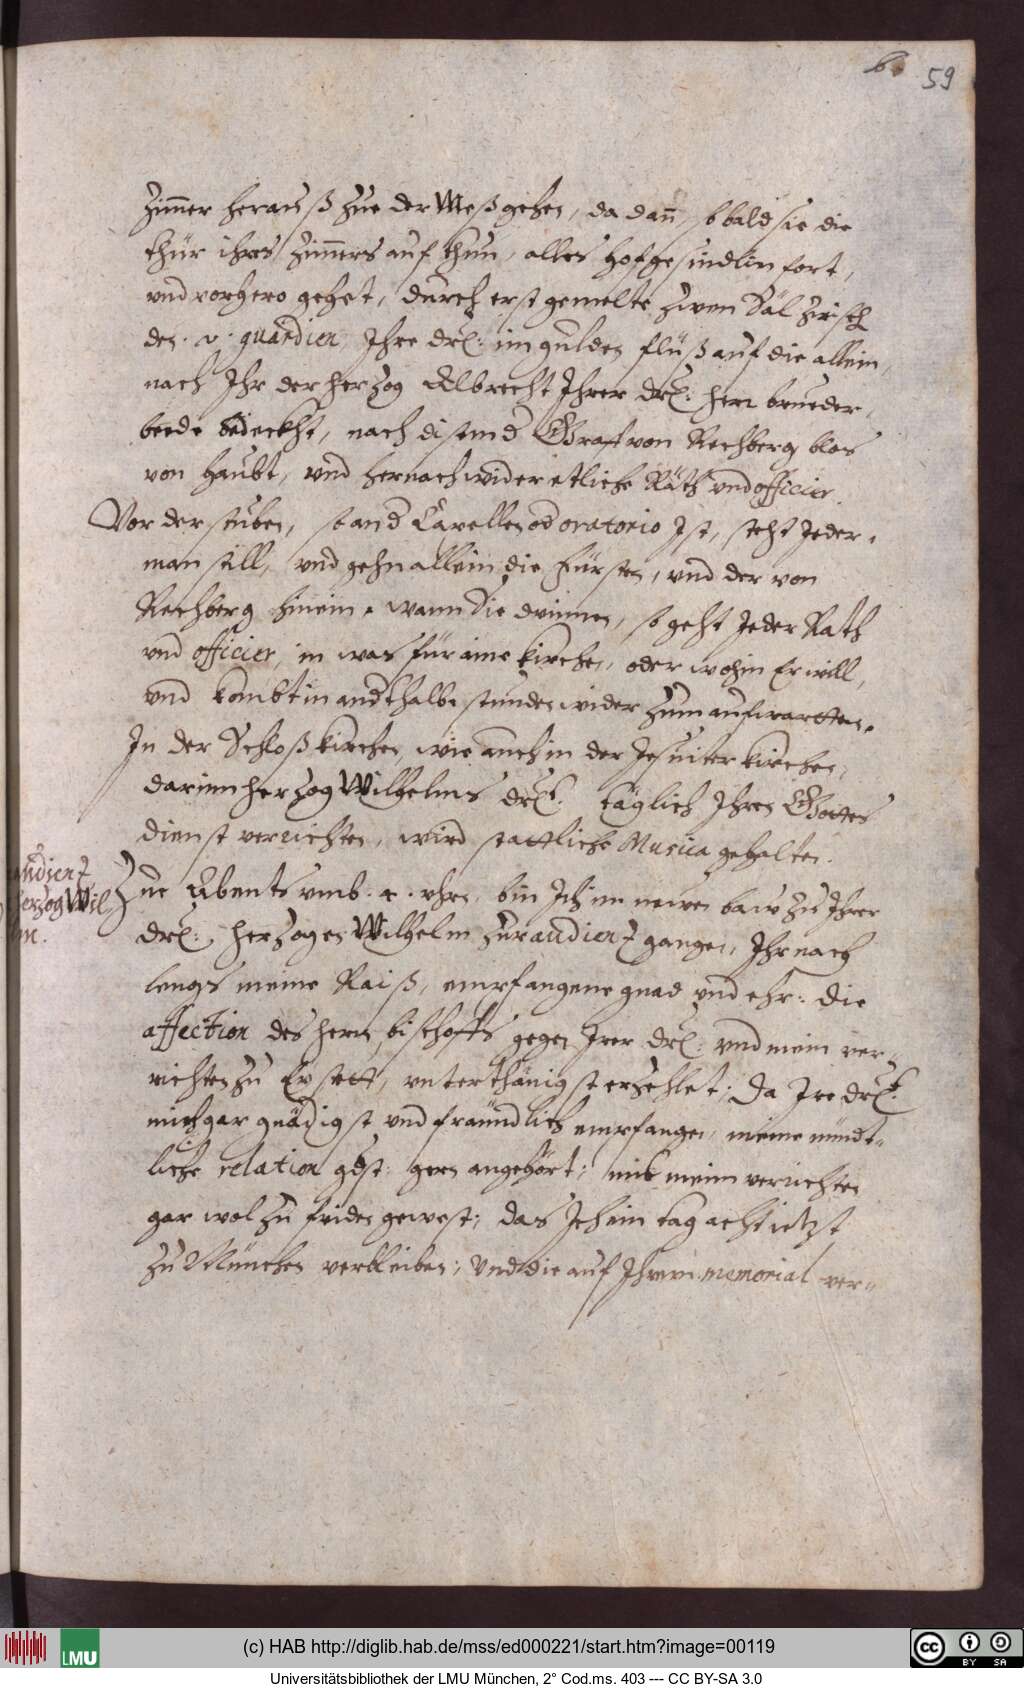 59
Zimmer herauß zue der Meß gehen, da dann, so bald sie die
thür ihres Zimmers auf thun, alles hofgesindlin fort,
und vorhero gehet, durch erst gemelte zwen Säl zwisch
den. v. guardien, Ihre drl: im gulden flüß auf die allein,
nach Ihr der herzog Albrecht Ihrer drl: herr brueder,
beede bedeckht, nach disem d Graff von Rechberg blos
von haubt, und hernach wider etliche Räth und officier.
Vor der stuben, so and Capellen od oratorio Ist, steht Jeder-
man still, und gehn allein die Fürsten, und der von
Rechberg hinein. wann Sie drinnen, so geht Jeder Rath
und officier, in was für aine kirchen, oder wohin Er will,
und kombt in andthalb stunden wider zum aufwartten.
In der Schloßkirchen, wie auch in der Jesuiter kirchen,
darinn herzog Wilhelms drl: täglich Ihren Gottes
dienst verrichten, wird stattliche Musica gehalten.
ne Abents umb. 4. uhrn, bin Ich im newen baw zu Ihrer
drl: herzogen Wilhelm zur audienz gangen, Ihr nach
lengs meine Raiß, empfangene gnad und ehr: die
affection des herrn bischoffs gegen Irer drl: und mein ver-
richten zu Eystett, unterthänigst erzehlet; Da Ire drl:
mich gar gnädigst und fraündlich empfangen, meine mündt-
liche relation gdst: gern angehört; mit meim verrichten
gar wol zu friden gewest; das Ich ein tag acht ietzt
zu München verbleiben; Und die auf Ihrem memorial ver-
audienz
herzog Wil-
m.
(c) HAB http://diglib.hab.de/mss/ed000221/start.htm?image=00119
LMU
cc BY SA
Universitätsbibliothek der LMU München, 2° Cod.ms. 403 --- CC BY-SA 3.0